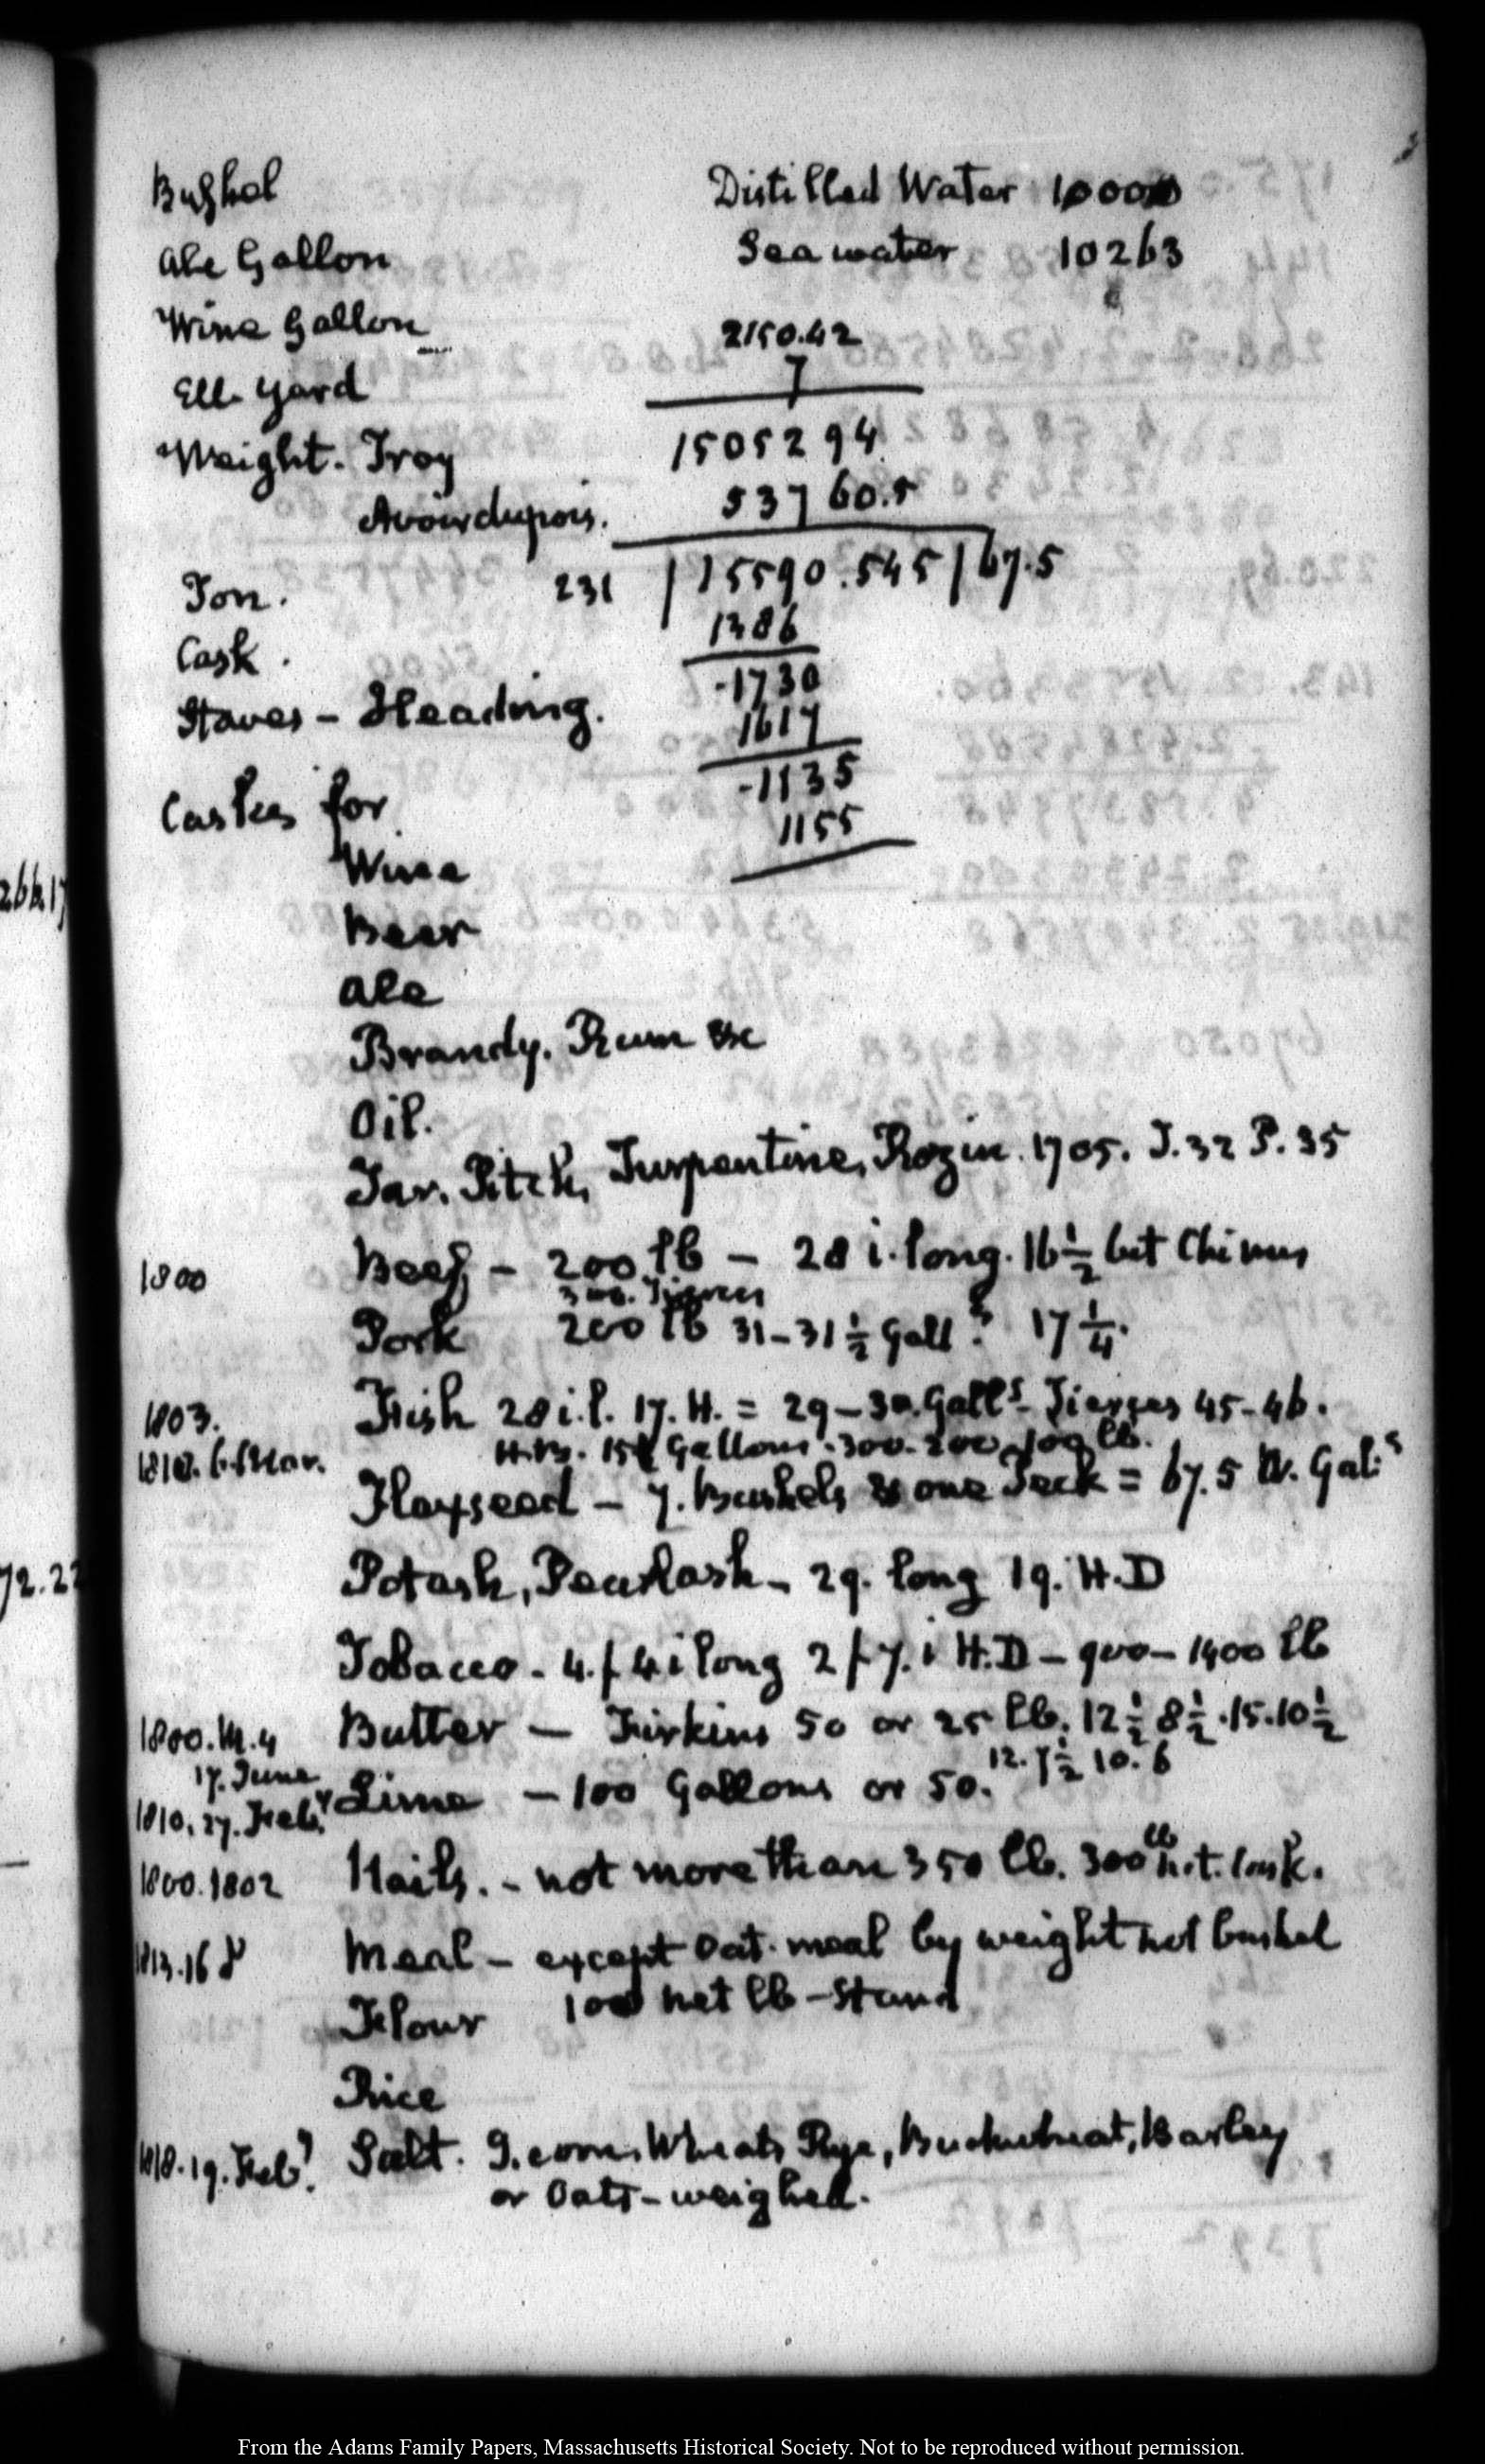 Bushel
Ale Gallon
Wine Gallon
Ell. Yard
Weight. Troy
Avoirdupois.
Ton.
Cask.
Staves – Heading.
Distilled Water 10000
Sea water 10263
2150.42
7
1505294
53760.5
231 | 15590.545 | 67.5
1386
-1730
1617
-1135
1155
Casks for
Wine
Beer
Ale
Brandy. Rum &c
Oil.
Tar. Pitch, Turpentine, Rozin. 1705. T. 32 P. 35
1800 Beef – 200 lb – 28 i. long. 16½ bet Chimes
300. Tierces
Pork 200 lb 31–31½ Gall? 17¼.
1803. Fish 28 i. l. 17. H. = 29–30. Galls – Tierces 45–46.
1810. 6 Mar. H.B. 15 Gallons. 300. 200. 100 lb.
Flaxseed – 7. Bushels & one Peck = 67.5 W. Gals
Potash, Pearlash – 29. long 19. H.D
Tobacco – 4. f 4 i long 2 f 7. i H.D – 900 – 1400 lb
1800. M. 4 Butter – Firkins 50 or 25 lb. 12½ 8½. 15. 10½
12. 7½ 10. 6
17. June
1810. 27. Feby Lime – 100 Gallons or 50.
1800. 1802 Nails. – not more than 350 lb. 300 lb n.t. Cask.
1813. 16 Meal – except Oat. meal by weight not bushel
100 net lb – Stand
Flour
Rice
1818. 19. Feby. Salt. I. corn. Wheat, Rye, Buckwheat, Barley
or Oats – weighed.
266.17
72.22
From the Adams Family Papers, Massachusetts Historical Society. Not to be reproduced without permission.